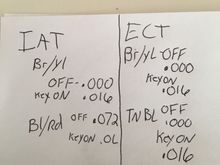 IAT
Br/yl
OFF-.000
Key ON .016
Bl/Rd OFF .072
Key ON .OL
ECT
Br/yL-OFF
.000
Key ON
.016
TN BL OFF
.000
Key ON
.016